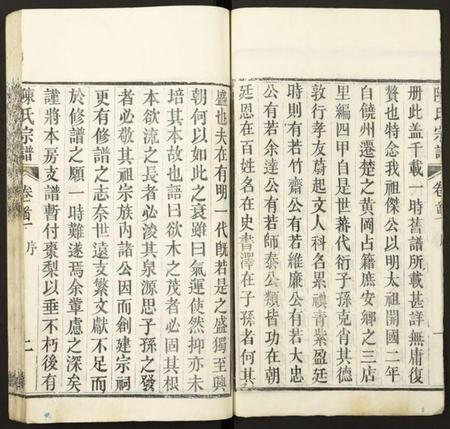 陳氏宗譜 卷首
册此盖千載一時舊譜所載甚詳無庸復
贅也特念我祖傑公以明太祖開國二年
自饒州遷楚之黃岡占籍庶安鄉之三店
里編四甲自是世蕃代衍子孫克肖其德
敦行孝友蔚起文人科名累禩青紫盈廷
時則有若竹齋公有若維廉公有若大忠
公有若余達公有若師泰公類皆功在朝
廷恩在百姓名在史書澤在子孫者何其
盛也夫在有明一代既若是之盛獨至興
朝何以如此之衰雖曰氣運使然抑亦未
培其本故也語曰欲木之茂者必固其根
本欲流之長者必浚其泉源思子孫之發
者必敬其祖宗族内諸公因而創建宗祠
更有修譜之志奈世遠支繁文獻不足而
於修譜之願一時難遂焉余輩慮之深矣
謹將本房支譜暫付棗梨以垂不朽後有
陳氏宗譜 卷首 序 二